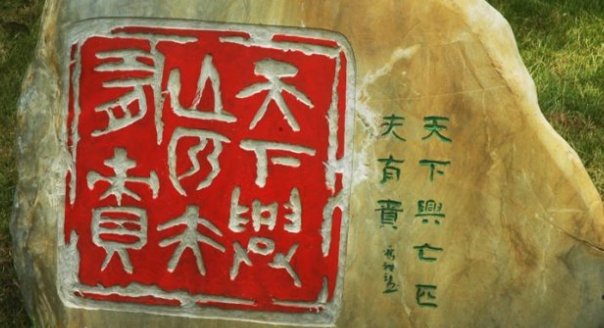 天下興
亡匹夫
有責
天下興亡匹
夫有責